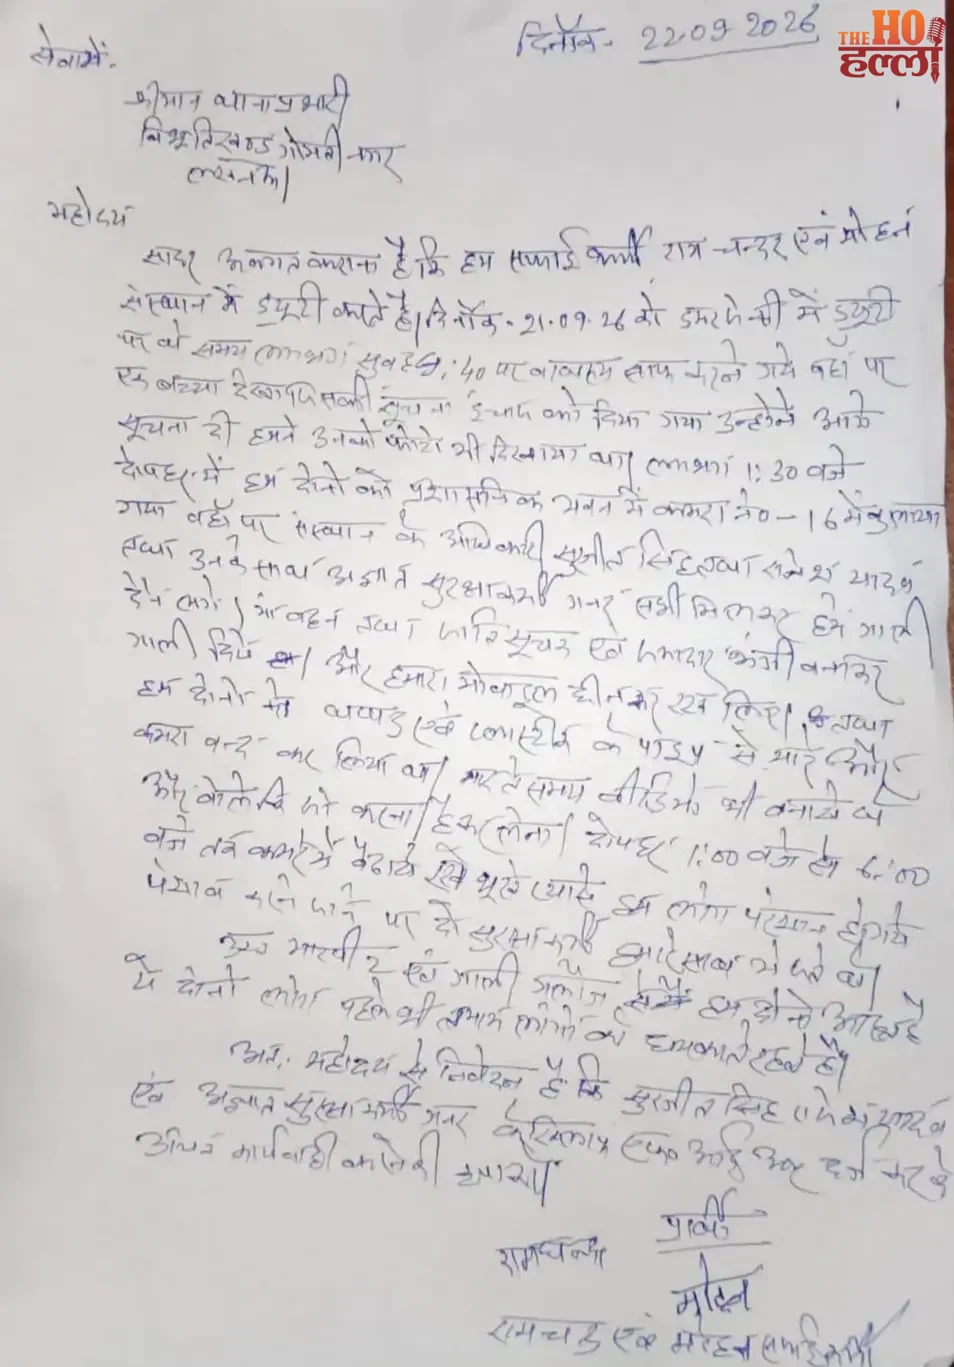 THE HO
हल्ला
दिनाँक- 22-09-2026
सेवामें-
श्रीमान थाना प्रभारी
विभूतिखण्ड गोमती नगर
लखनऊ।
महोदय
सादर अवगत कराना है कि हम सफाई कर्मी राम चन्दर एवं मोहन
संस्थान में ड्यूटी करते है। दिनाँक-21.09.26 को इमरजेन्सी में ड्यूटी
पर थे समय लगभग सुबह :40 पर बाथरूम साफ करने गये वहाँ पर
एक बच्चा देखा जिसकी सूचना इंचार्ज को दिया गया उन्होंने आगे
सूचना दी हमने उनको फोटो भी दिखाया था। लगभग 1:30 बजे
दोपहर में हम दोनो को प्रशासनिक भवन में कमरा नं०-16 में बुलाया
गया वहाँ पर संस्थान के अधिकारी सुजीत सिंह तथा यादव
तथा उनके साथ अज्ञात सुरक्षाकर्मी गार्ड सभी मिलकर हमें गाली
देने लगे। मां बहन तथा जाति सूचक एवं भंगी
गाली दिये और हमारा मोबाइल छीनकर रख लिए। तथा
हम दोनो को थप्पड़ एवं प्लास्टीक के पाइप से मारे और
कमरा बन्द कर लिया था। मारते समय वीडियो भी बनाये थे
और बोले कि जो करना है कर लेना। दोपहर 1:00 बजे से 6:00
बजे तक कमरे में बैठाये रखे भूखे प्यासे हम लोग परेशान हो गये
पेशाब करने जाने पर दो सुरक्षा कर्मी साथ में जाते थे।
इस मारपीट एवं गाली गलौज से हम दोनो आहत है
ये दोनो लोग पहले भी तमाम लोगों को धमकाते रहते है।
अतः महोदय से निवेदन है कि सुजीत सिंह यादव
एवं अज्ञात सुरक्षा कर्मी गार्ड के खिलाफ एफ आई आर दर्ज कर के
उचित कार्यवाही करने की कृपा
प्रार्थी
रामचन्द्र
मोहन
रामचन्द्र एवं मोहन सफाई कर्मी